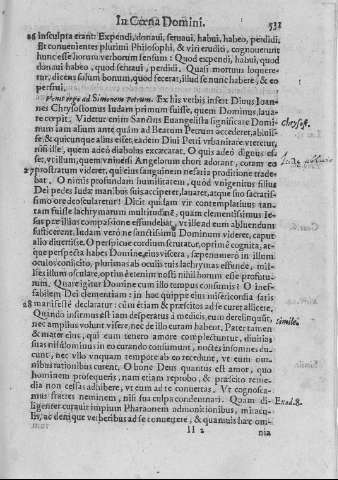 In Cœna Domini. 531
26 insculpta erant: Expendi, donaui, seruaui, habui, habeo, perdidi,
Et conuenientes plurimi Philosophi, & viri eruditi, cognouerunt
hunc esse horum verborum sensum: Quod expendi, habui, quod
donaui habeo, quod seruaui, perdidi. Quasi mortuus loquere
tur, dicens solum bonum, quod fecerat, illud se nunc habere, & co
perfrui.
Venit ergo ad Simonem Petrum. Ex his verbis infert Diuus Ioan-
nes Chrysostomus Iudam primum fuisse, quem Dominus, laua-
re cœpit. Videtur enim Sanctus Euangelista significare Domi- Chrysost.
num iam alium ante quàm ad Beatum Petrum accederet, abluis-
se, & quicunque alius esset, eædem Diui Petri vrbanitate vteretur,
nisi ille, quem adeò diabolus excæcarat. O quis adeò dignus es-
set, vt illum, quem vniuersi Angelorum chori adorant, coram eo
27 prostratum videret, qui eius sanguinem nefaria proditione trade-
bat. O nimis profundam humilitatem, quòd vnigenitus filius
Dei pedes Iudæ manibus suis acciperet, lauaret, atque suo sacratis-
simo ore deoscularetur! Dicit quidam vir contemplatiuus tan-
tam fuisse lachrymarum multitudinē, quam clementissimus Ie-
sus præ illius compassione effundebat, vt ille ad eum abluendum
sufficerent. Iudam verò ne sanctissimū Dominum videret, caput
alio diuertisse. O perspicue cordium scrutator, optimè cognita, at-
que perspecta habes Domine, eius viscera, sæpe numerò in illum
oculos conijcito, plurimas ab oculis tuis lachrymas effunde, mil-
lies illum osculare, optimè tenim nosti nihil horum ei se profutu-
rum. Quare igitur Domine cum illo tempus consumis? O inef-
fabilem Dei clementiam: in hoc quippe eius misericordia satis
28 manifestè declaratur: cùm etiam & præscitos ad se curet allicere.
Quando infirmus est iam desperatus à medicis, eum derelinquūt, simile.
nec amplius volunt visere, nec de illo curam habent. Pater tamen
& mater eius, qui eum tenero amore complectuntur, diuitias
suas nihilominus in eo curando consumunt, noctes insomnes du-
cunt, nec vllo vnquam tempore ab eo recedunt, vt eum om-
nibus rationibus curent. O bone Deus quantus est amor, quo
hominem prosequeris, nam etiam reprobo, & præscito reme-
dia non cessas adhibere, vt eum ad te conuertas. Vt cognosca-
mus fratres neminem, nisi sua culpa condemnari. Quam di-
ligenter curauit impium Pharaonem admonitionibus, miracu- Exod. 8.
lis, ac denique verberibus ad se conuertere, & quamuis hæc om-
Ll 2 nia